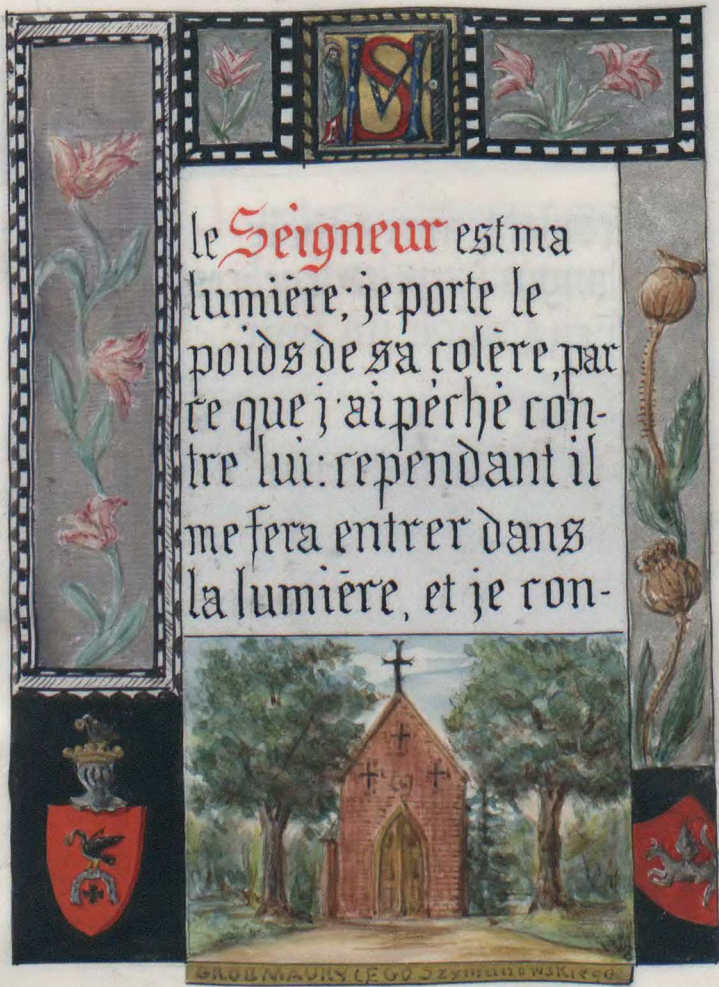 MS
le Seigneur est ma
lumière; je porte le
poids de sa colère, par
ce que j'ai péché con-
tre lui: cependant il
me fera entrer dans
la lumière, et je con-
GROB MAURYCEGO Szymanowskiego